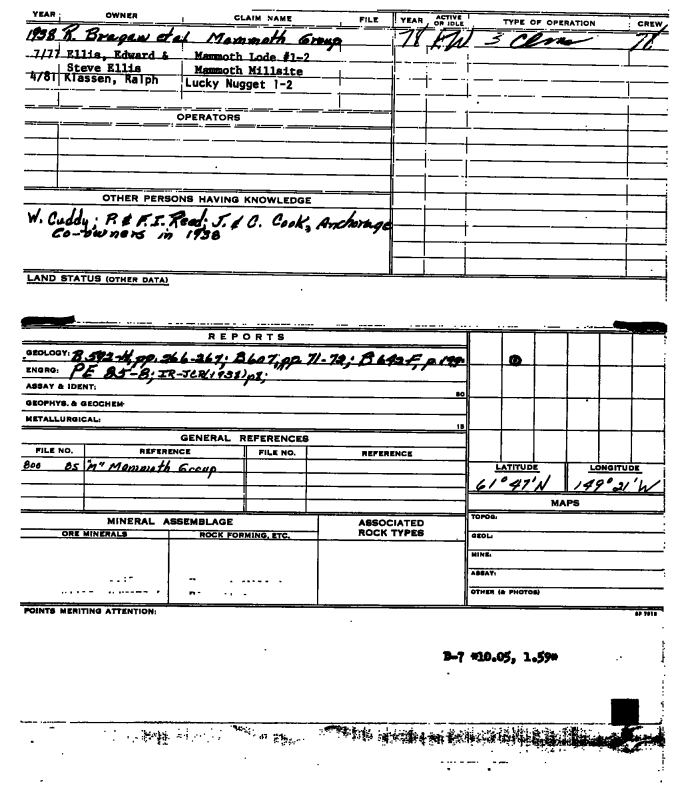 YEAR OWNER CLAIM NAME FILE YEAR ACTIVE OR IDLE TYPE OF OPERATION CREW
1938 R. Bragaw et al Mammoth Group 78 3 Clms
7/77 Ellis, Edward & Mammoth Lode #1-2
Steve Ellis Mammoth Millsite
4/81 Klassen, Ralph Lucky Nugget 1-2
OPERATORS
OTHER PERSONS HAVING KNOWLEDGE
W. Cuddy; P. & F.I. Reed; J. & C. Cook, Anchorage
Co-owners in 1938
LAND STATUS (OTHER DATA)
REPORTS
GEOLOGY: B 592-H, pp. 266-267; B 607, pp. 71-72; B 642-F, p.
ENGRG: PE 85-8; IR-JCR(1938)p1;
ASSAY & IDENT:
GEOPHYS. & GEOCHEM
METALLURGICAL:
GENERAL REFERENCES
FILE NO. REFERENCE FILE NO. REFERENCE
800 85 "M" Mammoth Group
LATITUDE LONGITUDE
61° 47' N 149° 21' W
MAPS
MINERAL ASSEMBLAGE ASSOCIATED ROCK TYPES
ORE MINERALS ROCK FORMING, ETC.
TOPOG:
GEOL:
MINE:
ASSAY:
OTHER (& PHOTOS)
POINTS MERITING ATTENTION:
D-7 #10.05, 1.59#